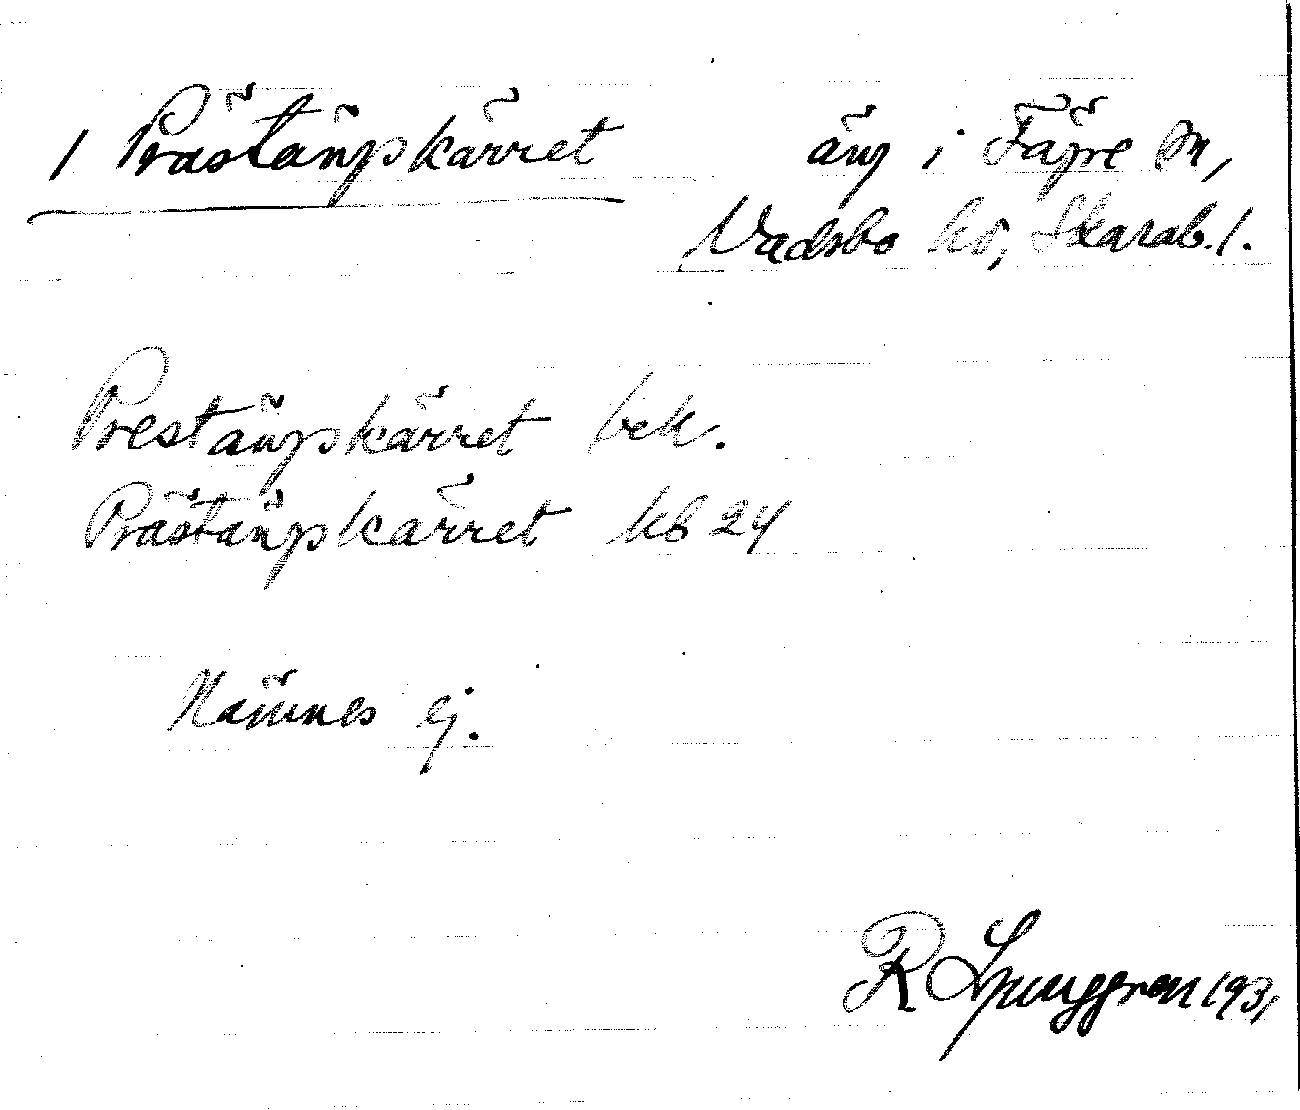 1 Prästängskärret äng i Fägre sn,
Vadsbo hd, Skarab. l.
Prestängskärret bek.
Prästängskärret kb 24
Nämnes ej.
R Ljunggren 1931